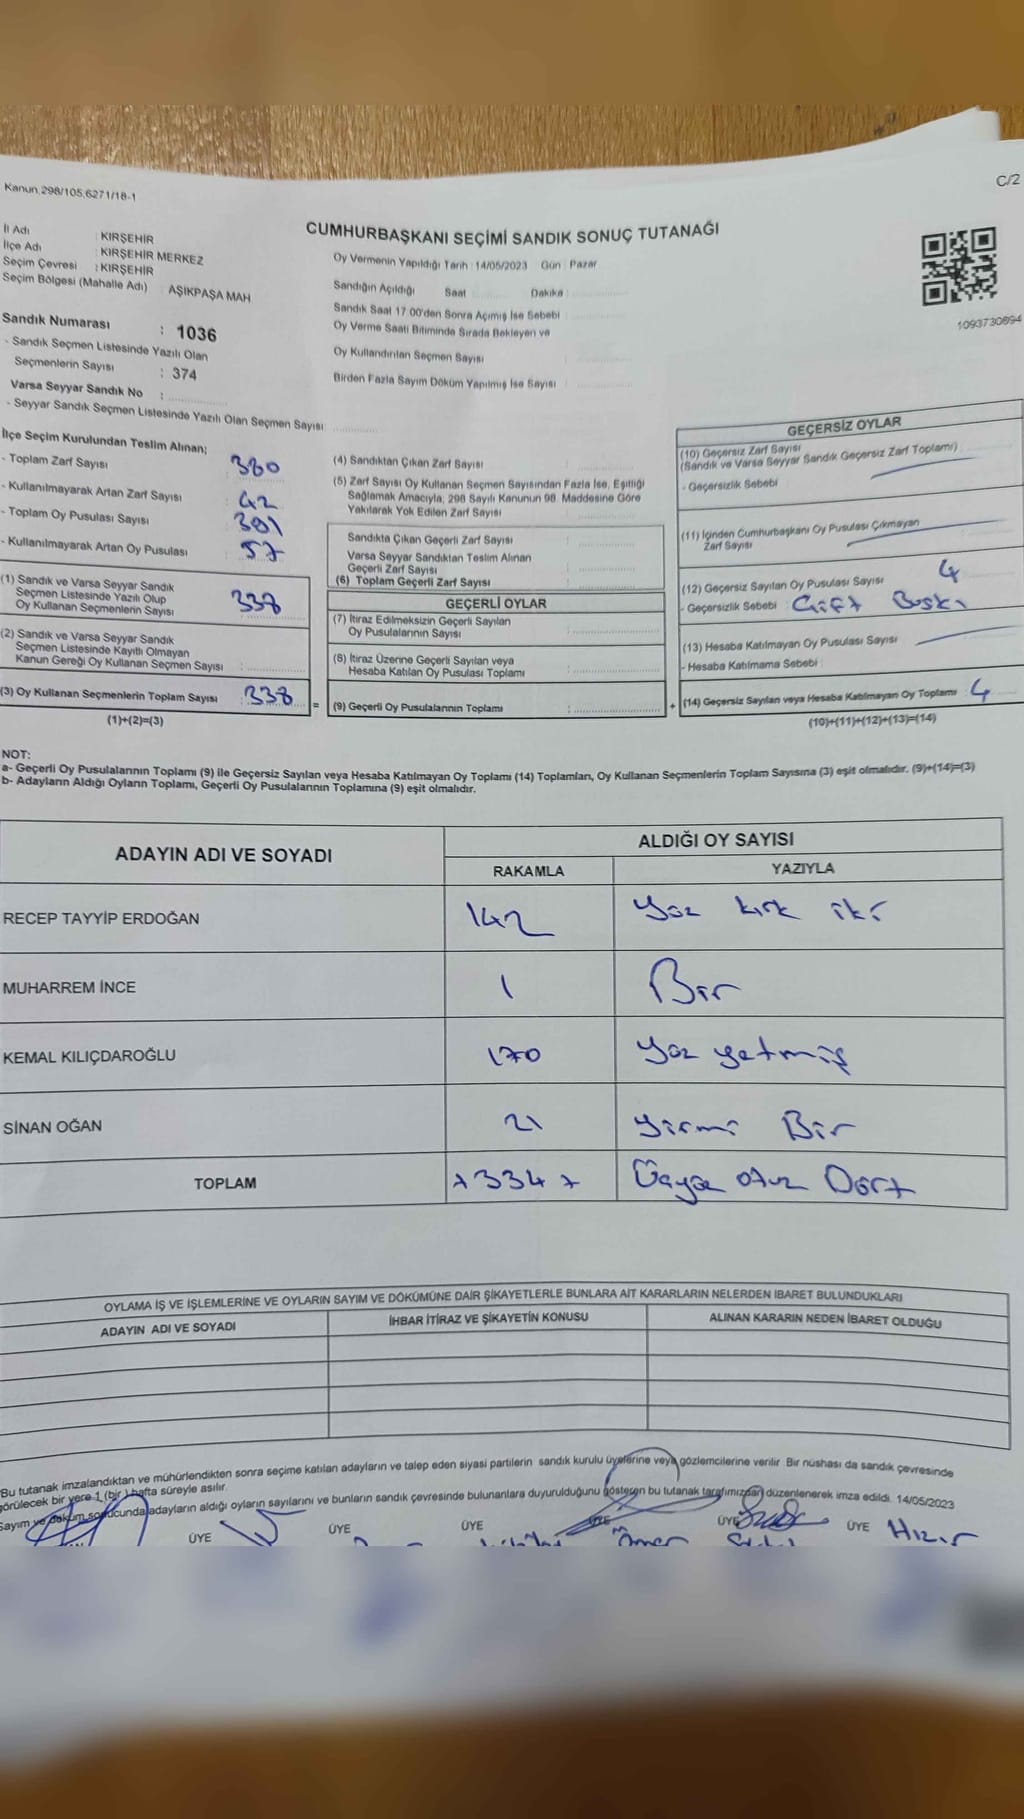 Kanun.298/105,6271/18-1
C/2
CUMHURBAŞKANI SEÇİMİ SANDIK SONUÇ TUTANAĞI
İl Adı : KIRŞEHİR
İlçe Adı : KIRŞEHİR MERKEZ
Seçim Çevresi : KIRŞEHİR
Seçim Bölgesi (Mahalle Adı) : AŞIKPAŞA MAH
Sandık Numarası : 1036
- Sandık Seçmen Listesinde Yazılı Olan
Seçmenlerin Sayısı : 374
Varsa Seyyar Sandık No :
- Seyyar Sandık Seçmen Listesinde Yazılı Olan Seçmen Sayısı
Oy Vermenin Yapıldığı Tarih : 14/05/2023 Gün : Pazar
Sandığın Açıldığı Saat Dakika :
Sandık Saat 17.00'den Sonra Açımış İse Sebebi :
Oy Verme Saati Bitiminde Sırada Bekleyen ve
Oy Kullandırılan Seçmen Sayısı :
Birden Fazla Sayım Döküm Yapılmış İse Sayısı :
1093730894
İlçe Seçim Kurulundan Teslim Alınan;
- Toplam Zarf Sayısı : 380
- Kullanılmayarak Artan Zarf Sayısı : 42
- Toplam Oy Pusulası Sayısı : 391
- Kullanılmayarak Artan Oy Pusulası : 57
(1) Sandık ve Varsa Seyyar Sandık
Seçmen Listesinde Yazılı Olup
Oy Kullanan Seçmenlerin Sayısı : 338
(2) Sandık ve Varsa Seyyar Sandık
Seçmen Listesinde Kayıtlı Olmayan
Kanun Gereği Oy Kullanan Seçmen Sayısı :
(3) Oy Kullanan Seçmenlerin Toplam Sayısı : 338
(1)+(2)=(3)
(4) Sandıktan Çıkan Zarf Sayısı :
(5) Zarf Sayısı Oy Kullanan Seçmen Sayısından Fazla İse, Eşitliği
Sağlamak Amacıyla, 298 Sayılı Kanunun 98. Maddesine Göre
Yakılarak Yok Edilen Zarf Sayısı :
Sandıkta Çıkan Geçerli Zarf Sayısı :
Varsa Seyyar Sandıktan Teslim Alınan
Geçerli Zarf Sayısı :
(6) Toplam Geçerli Zarf Sayısı :
GEÇERLİ OYLAR
(7) İtiraz Edilmeksizin Geçerli Sayılan
Oy Pusulalarının Sayısı :
(8) İtiraz Üzerine Geçerli Sayılan veya
Hesaba Katılan Oy Pusulası Toplamı :
= (9) Geçerli Oy Pusulalarının Toplamı :
GEÇERSİZ OYLAR
(10) Geçersiz Zarf Sayısı
(Sandık ve Varsa Seyyar Sandık Geçersiz Zarf Toplamı)
- Geçersizlik Sebebi :
(11) İçinden Cumhurbaşkanı Oy Pusulası Çıkmayan
Zarf Sayısı
(12) Geçersiz Sayılan Oy Pusulası Sayısı : 4
- Geçersizlik Sebebi : Çift Baskı
(13) Hesaba Katılmayan Oy Pusulası Sayısı :
- Hesaba Katılmama Sebebi :
+ (14) Geçersiz Sayılan veya Hesaba Katılmayan Oy Toplamı : 4
(10)+(11)+(12)+(13)=(14)
NOT:
a- Geçerli Oy Pusulalarının Toplamı (9) ile Geçersiz Sayılan veya Hesaba Katılmayan Oy Toplamı (14) Toplamları, Oy Kullanan Seçmenlerin Toplam Sayısına (3) eşit olmalıdır. (9)+(14)=(3)
b- Adayların Aldığı Oyların Toplamı, Geçerli Oy Pusulalarının Toplamına (9) eşit olmalıdır.
ADAYIN ADI VE SOYADI
ALDIĞI OY SAYISI
RAKAMLA YAZIYLA
RECEP TAYYİP ERDOĞAN 142 Yüz kırk iki
MUHARREM İNCE 1 Bir
KEMAL KILIÇDAROĞLU 170 Yüz yetmiş
SİNAN OĞAN 21 Yirmi Bir
TOPLAM 334 Üçyüz otuz Dört
OYLAMA İŞ VE İŞLEMLERİNE VE OYLARIN SAYIM VE DÖKÜMÜNE DAİR ŞİKAYETLERLE BUNLARA AİT KARARLARIN NELERDEN İBARET BULUNDUKLARI
ADAYIN ADI VE SOYADI İHBAR İTİRAZ VE ŞİKAYETİN KONUSU ALINAN KARARIN NEDEN İBARET OLDUĞU
Bu tutanak imzalandıktan ve mühürlendikten sonra seçime katılan adayların ve talep eden siyasi partilerin sandık kurulu üyelerine veya gözlemcilerine verilir. Bir nüshası da sandık çevresinde
görülecek bir yere 1 (bir) hafta süreyle asılır.
Sayım ve döküm sonucunda adayların aldığı oyların sayılarını ve bunların sandık çevresinde bulunanlara duyurulduğunu gösteren bu tutanak tarafımızdan düzenlenerek imza edildi. 14/05/2023
ÜYE ÜYE ÜYE ÜYE ÜYE ÜYE
Ömer Hızır